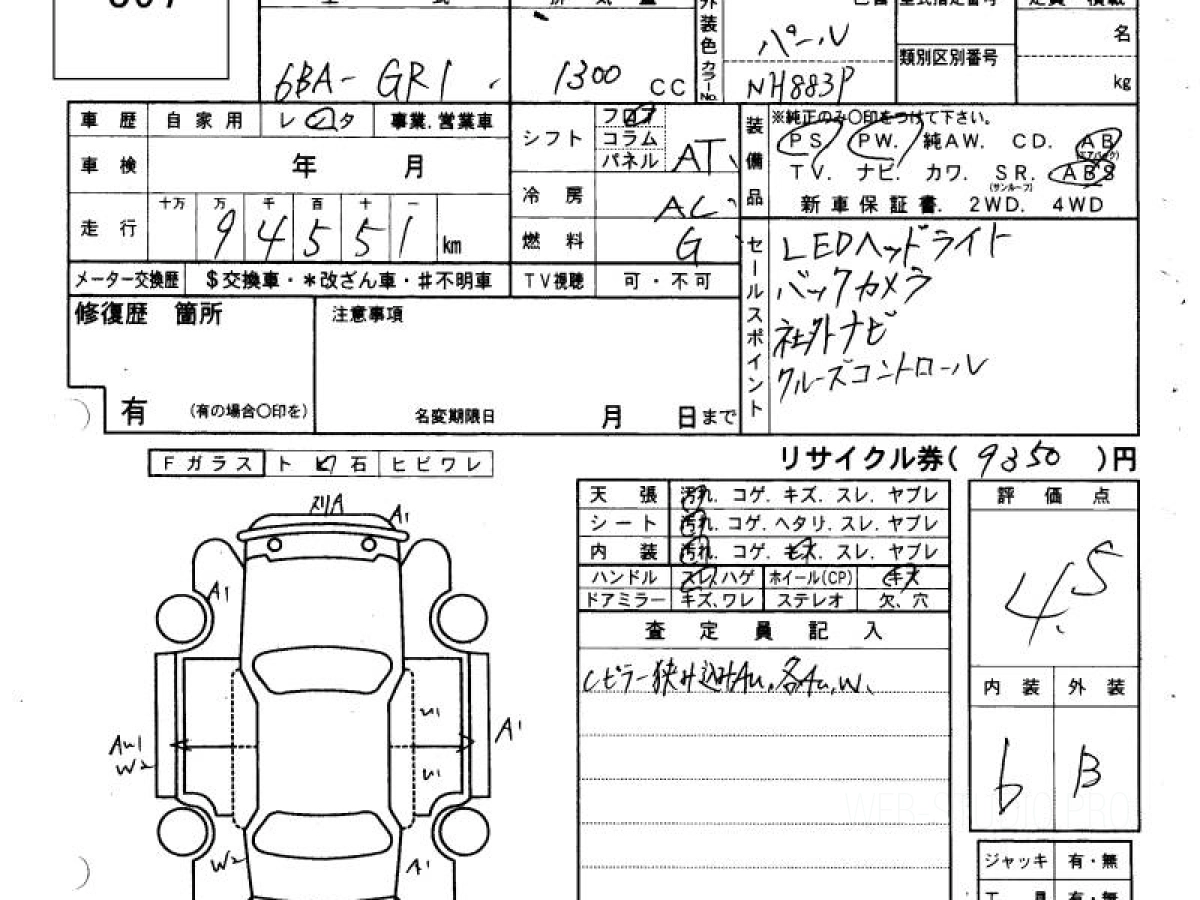 6BA-GR1
1300 CC
外装色 カラーNo.
パール
NH883P
類別区別番号
名
kg
車歴 自家用 レンタ 事業.営業車
シフト フロア コラム パネル AT
装備品 ※純正のみ〇印をつけて下さい。
PS. PW. 純AW. CD. AB (エアバック)
TV. ナビ. カワ. SR. (サンルーフ) ABS
新車保証書. 2WD. 4WD
車検 年 月
冷房 AC
走行 十万 万 千 百 十 一
9 4 5 5 1 km
燃料 G
メーター交換歴 $交換車・*改ざん車・#不明車 TV視聴 可・不可
セールスポイント
LEDヘッドライト
バックカメラ
社外ナビ
クルーズコントロール
修復歴 箇所
注意事項
有 (有の場合〇印を)
名変期限日 月 日まで
リサイクル券( 9350 )円
Fガラス ト 石 ヒビワレ
天張 汚れ. コゲ. キズ. スレ. ヤブレ
シート 汚れ. コゲ. ヘタリ. スレ. ヤブレ
内装 汚れ. コゲ. キズ. スレ. ヤブレ
ハンドル スレ.ハゲ ホイール(CP) キズ
ドアミラー キズ、ワレ ステレオ 欠、穴
査定員記入
Cピラー狭み込みAu,各Au,W、
評価点
4.5
内装 外装
6 B
ジャッキ 有・無
工具 有・無
A1
A1
A1
AU1
W2
W2
A1
WEB-STUDIO.PRO